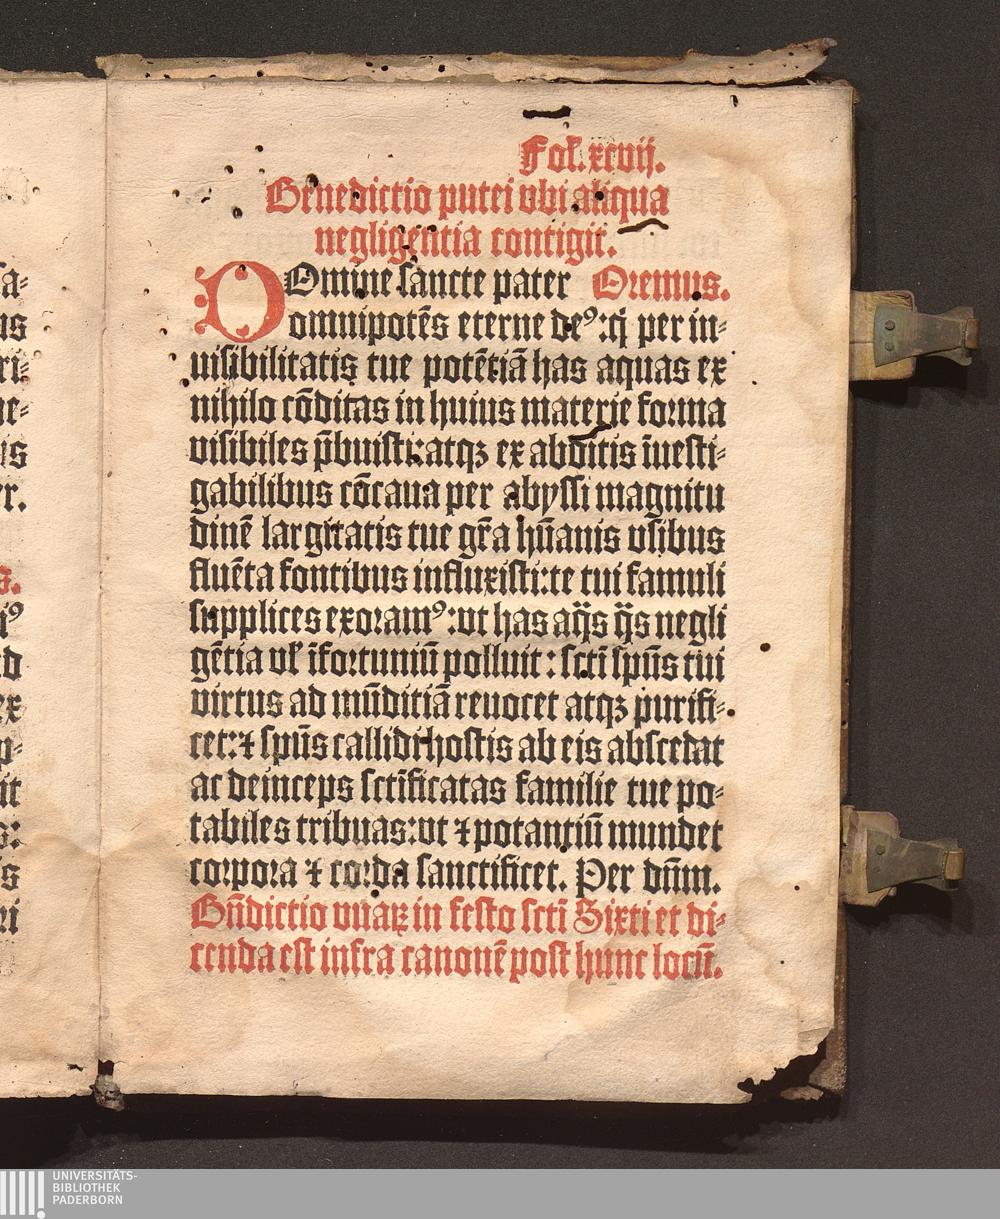 Fol. xcvij.
Benedictio putei vbi aliqua
negligentia contigit.
DOmine sancte pater Oremus.
omnipotẽs eterne deꝰ: q̃ per in⸗
uisibilitatis tue potẽtiã has aquas ex
nihilo cõditas in huius materie forma
visibiles p̃buisti: atqꝫ ex abditis ĩuesti⸗
gabilibus cõcaua per abyssi magnitu
dinẽ largitatis tue gr̃a hũanis vsibus
fluẽta fontibus influxisti: te tui famuli
supplices exoramꝰ: vt has aq̃s q̃s negli
gẽtia vl̛ ĩfortuniũ polluit: scti̅ spũs tui
virtus ad mũditiã reuocet atqꝫ purifi⸗
cet: ⁊ spũs callidi hostis ab eis abscedat
ac deinceps sctĩficatas familie tue po⸗
tabiles tribuas: vt ⁊ potantiũ mundet
corpora ⁊ corda sanctificet. Per dñm.
Bñdictio vuaꝝ in festo scti̅ Sixti et di⸗
cenda est infra canonẽ post hunc locũ.
sa⸗
us
ri⸗
ne⸗
is
er.
s.
iꝰ
ed
ex
p⸗
it
s:
is
ri
UNIVERSITÄTS-
BIBLIOTHEK
PADERBORN